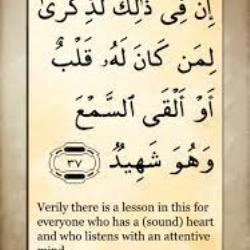 إِنَّ فِى ذَٰلِكَ لَذِكْرَىٰ
لِمَن كَانَ لَهُۥ قَلْبٌ
أَوْ أَلْقَى ٱلسَّمْعَ
وَهُوَ شَهِيدٌ ٣٧
Verily there is a lesson in this for
everyone who has a (sound) heart
and who listens with an attentive
mind